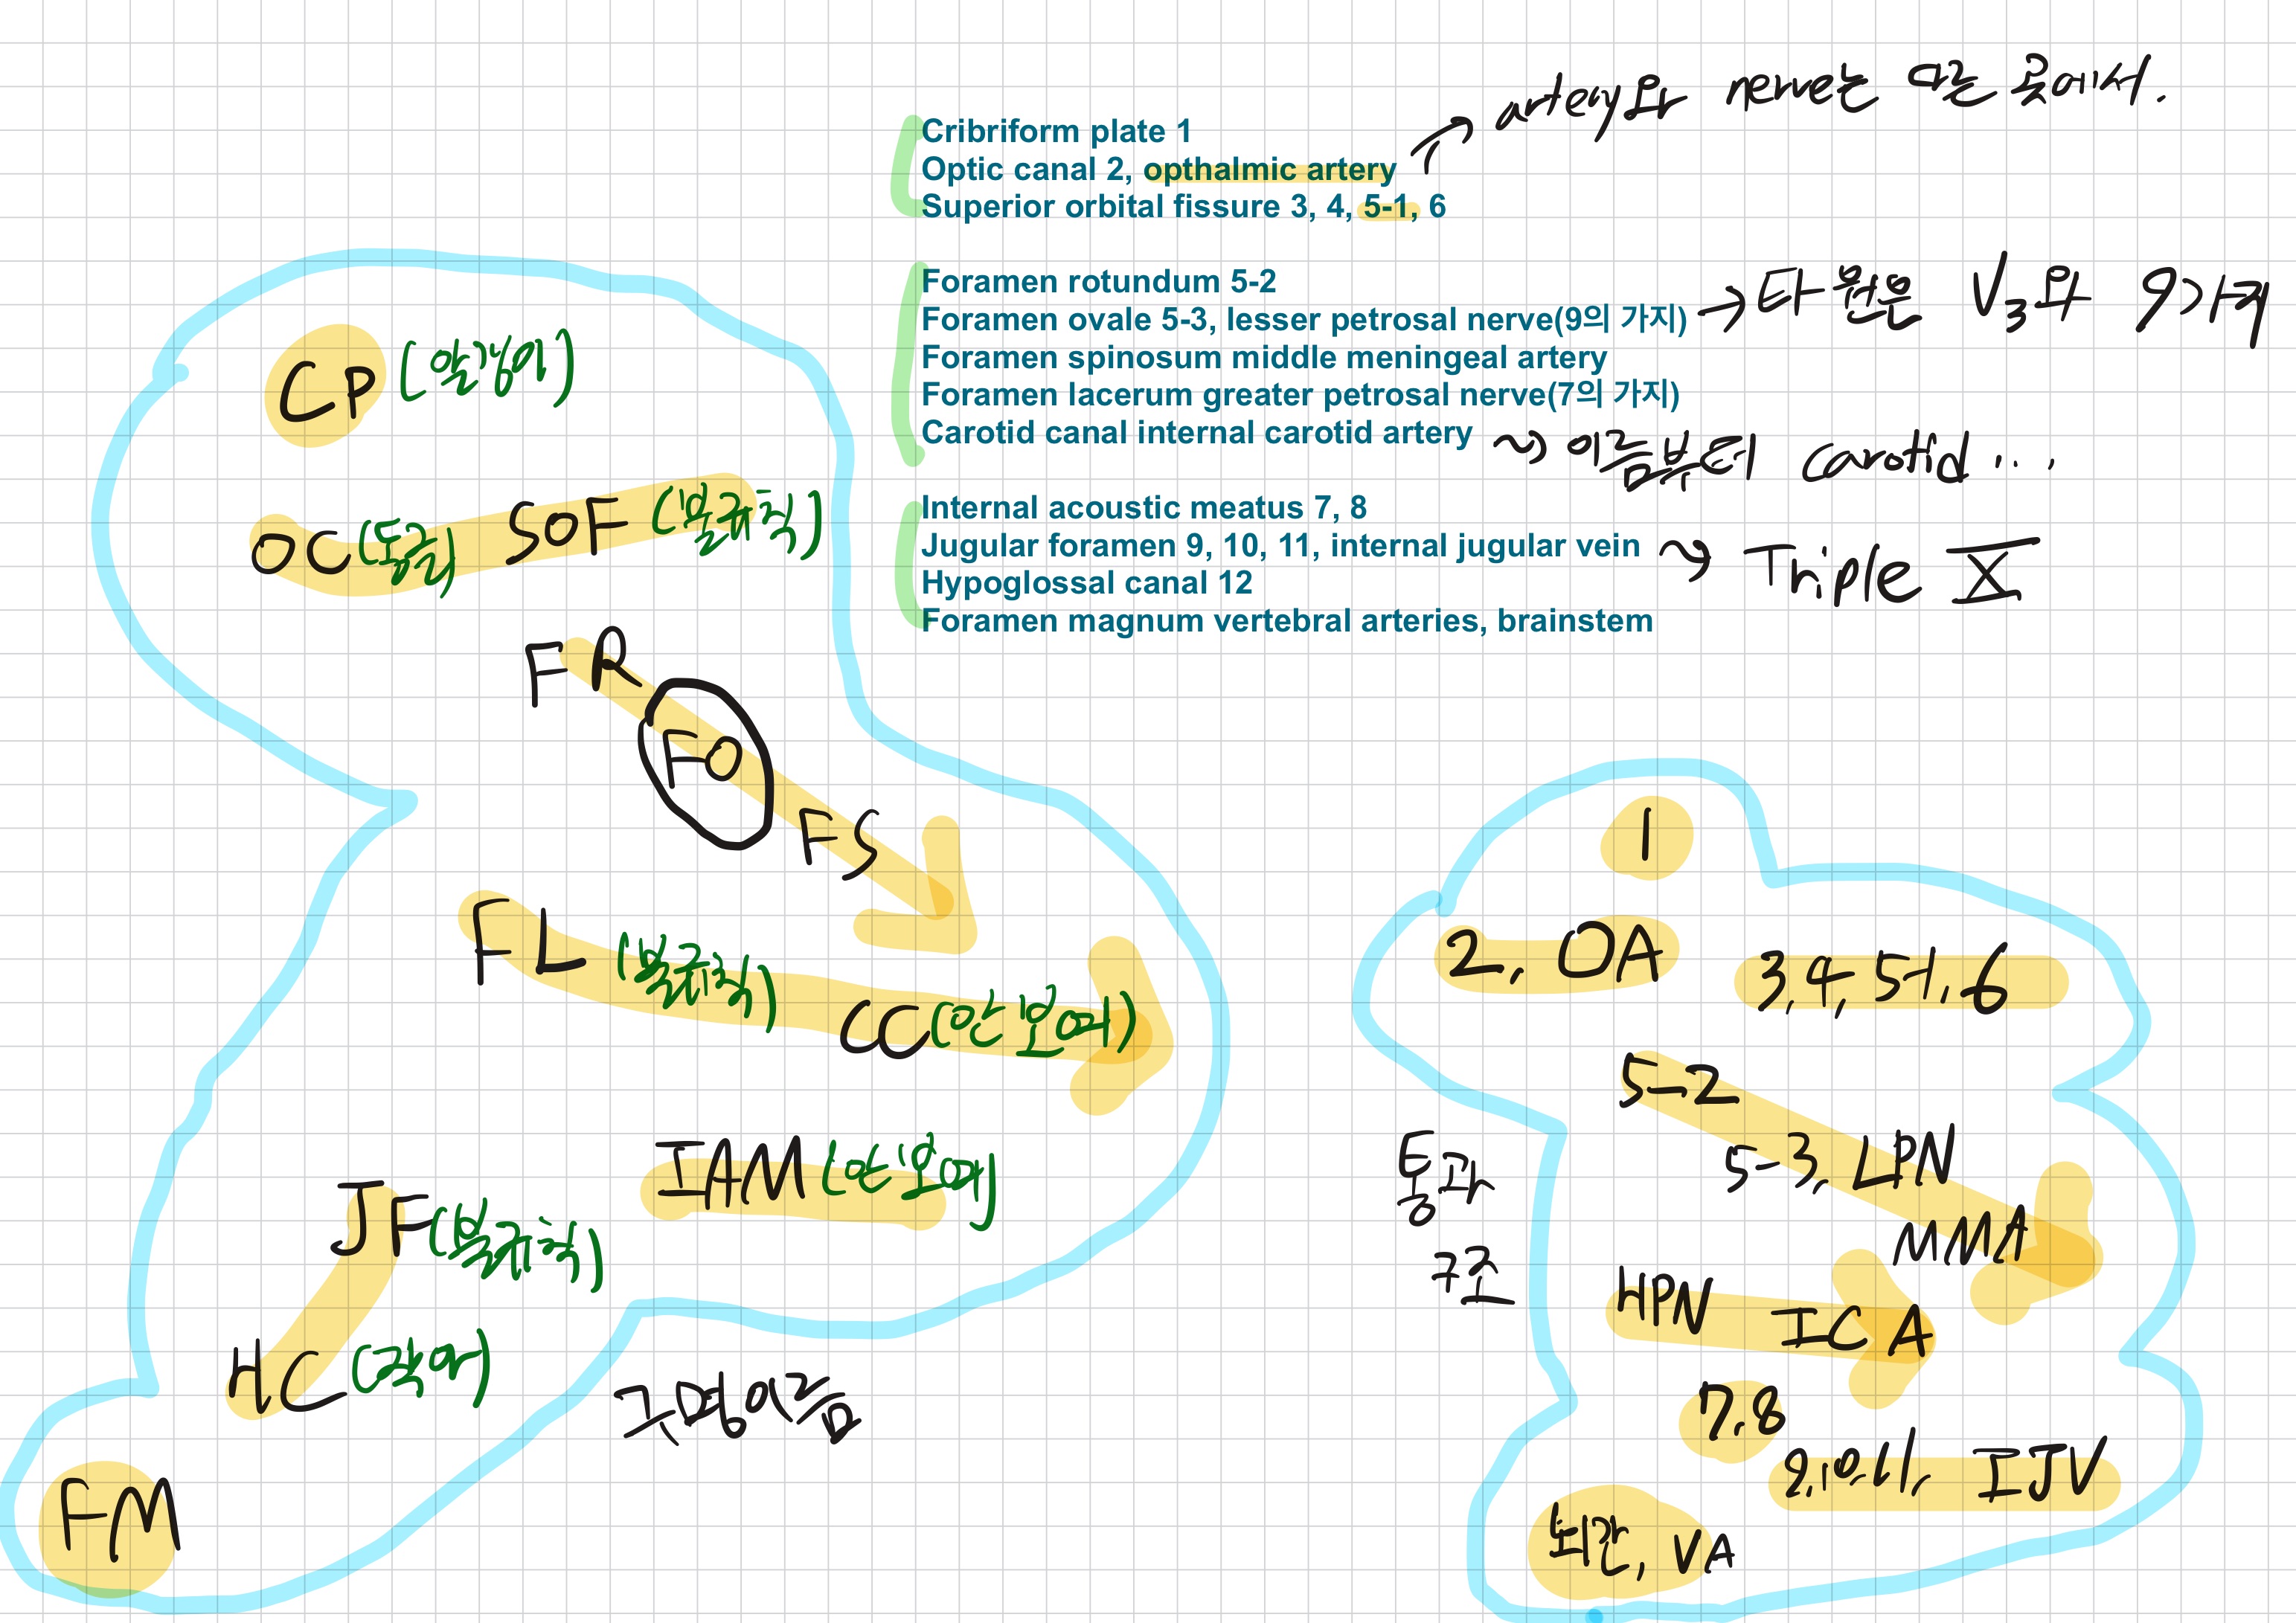 artery와 nerve는 다른 곳에서.
Cribriform plate 1
Optic canal 2, opthalmic artery
Superior orbital fissure 3, 4, 5-1, 6
Foramen rotundum 5-2
Foramen ovale 5-3, lesser petrosal nerve(9의 가지)
→ 타원은 V3와 9가지
Foramen spinosum middle meningeal artery
Foramen lacerum greater petrosal nerve(7의 가지)
Carotid canal internal carotid artery
이름부터 carotid...
Internal acoustic meatus 7, 8
Jugular foramen 9, 10, 11, internal jugular vein
Triple X
Hypoglossal canal 12
Foramen magnum vertebral arteries, brainstem
CP (알갱이)
OC (동굴) SOF (불규칙)
FR
FO
FS
FL (불규칙)
CC (안보여)
IAM (안보여)
JF (불규칙)
HC (작아)
FM
구멍이름
1
2, OA
3, 4, 5-1, 6
5-2
5-3, LPN
MMA
HPN ICA
7, 8
9, 10, 11, IJV
뇌간, VA
통과
구조